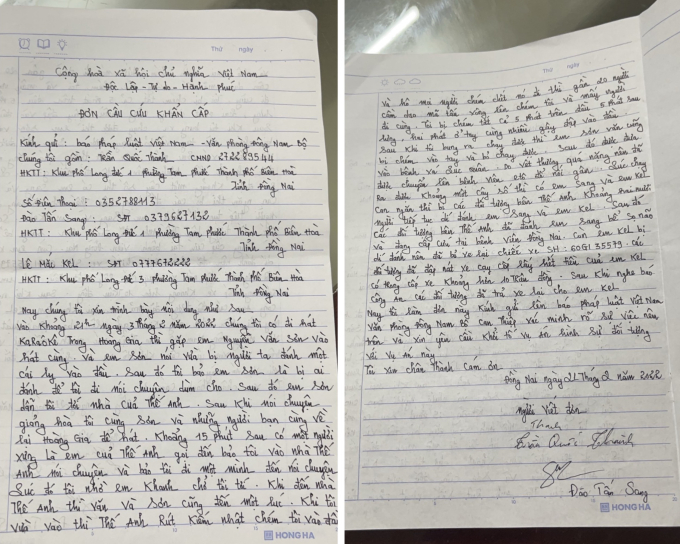 Thứ ngày
Cộng hoà xã hội chủ nghĩa Việt Nam
Độc Lập - Tự do - Hành Phúc
ĐƠN CẦU CỨU KHẨN CẤP
Kính gửi: báo pháp luật Việt Nam - Văn phòng Đông Nam Bộ
chúng tôi gồm: Trần Quốc Thanh CMND 272289544
HKTT: Khu phố Long Đức 1 phường Tam phước Thành phố Biên Hoà
Tỉnh Đồng Nai
Số Điện Thoại: 0352788113
Đào Tấn Sang: SĐT 0379627132
HKTT: Khu phố Long Đức 1 phường Tam phước Thành phố Biên Hoà
Tỉnh Đồng Nai
Lê Mắc Kel: SĐT 0777672222
HKTT: Khu phố Long Đức 3 phường Tam phước Thành phố Biên Hoà
Tỉnh Đồng Nai
Nay chúng tôi xin trình bày nội dung như sau
Vào Khoảng 21h ngày 3 Tháng 2 năm 2022 chúng tôi có đi hát
Karaôkê Trong Hoàng Gia thì gặp em Nguyễn Văn Sơn vào
hát cùng và em Sơn nói vừa bị người ta đánh một
cái ly vào đầu. Sau đó tôi bảo em Sơn là bị ai
đánh để tôi đi nói chuyện dùm cho Sau đó em Sơn
dẫn tôi tới nhà của Thế Anh. Sau khi nói chuyện
giảng hòa tôi cùng Sơn và những người bạn cùng về
lại Hoàng Gia để hát. Khoảng 15 phút sau có một người
xưng là em của Thế Anh gọi đến bảo tôi vào nhà Thế
Anh nói chuyện và bảo tôi đi một mình đến nói chuyện
Lúc đó tôi nhờ em Khanh chở tôi tới. Khi đến nhà
Thế Anh thì Vàn Và Sơn cũng đến một lúc. Khi tôi
vừa vào thì Thế Anh Rút Kiếm nhật chém tôi vào đầu
HONG HA
Thứ ngày
Và hô mọi người chém chết nó đi thì gần 20 người
cầm dao mã tấu xông lên chém tôi và mấy người
đi cùng. Tôi bị chém tất cả 5 phát trên đầu 5 phát sau
lưng, hai phát ở tay cùng nhiều gậy đập vào đầu.
Sau khi tôi bung ra chạy được thì em Sơn vẫn cũng
bị chém vào tay và bỏ chạy được. Sau đó được đưa
vào bệnh vì vết thương quá nặng nên đã
được chuyển lên bệnh viện để mổ gấp. Lúc chạy
ra được Khoảng một cây số thì có em Sang và em Kel
Con ngăn thì bị các đối tượng bên Thế Anh Khoảng 2 mươi người
Người tiếp tục đi đánh em Sang và em Kel. Sau đó
Các đối tượng bên Thế Anh đã đánh em Sang bể Sọ não
và đang cấp cứu tại bệnh viện Đồng Nai. Còn em Kel bị
đi đánh nên đã bỏ xe lại chiếc xe SH: 60G1 35579. Các
đối tượng đã đập nát xe cạy cốp lấy hết tiền của em Kel
có trong cốp xe Khoảng hơn 10 triệu đồng. Sau khi nghe báo
Công An các đối tượng đã trả xe lại cho em Kel
Nay tôi làm đơn này Kính gửi lên báo pháp luật Việt Nam
Văn phòng Đông Nam Bộ can Thiệp xác minh rõ sự việc nêu
trên và xin yêu cầu Khởi tố vụ án hình sự đối tượng
Với Vụ án này
Tôi xin chân Thành Cảm ơn
Đồng Nai ngày 21 Tháng 2 năm 2022
người Viết đơn
Thanh
Trần Quốc Thanh
Đào Tấn Sang
HONG HA